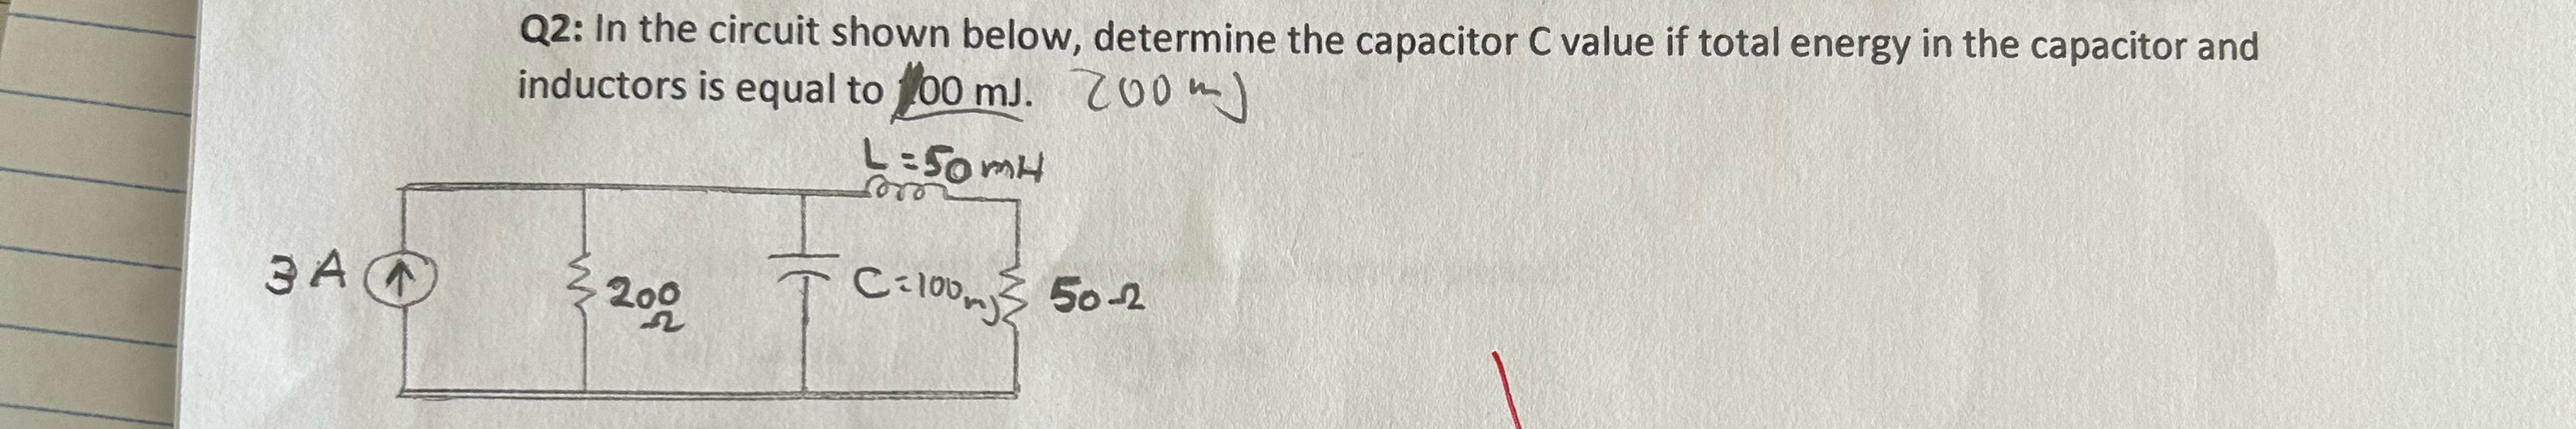 Q2: In the circuit shown below, determine the capacitor C value if total energy in the capacitor and
inductors is equal to 100 mJ. 200 mJ
L = 50 mH
3 A
200
Ω
C = 100mJ
50 Ω